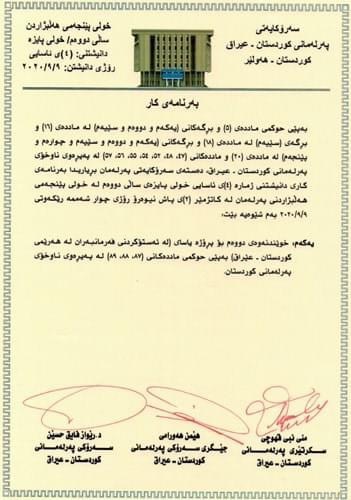 سەرۆکایەتی
پەرلەمانی کوردستان - عیراق
کوردستان - هەولێر
خولی پێنجەمی هەڵبژاردن
ساڵی دووەم/ خولی پایزە
دانیشتنی: (٤)ی ئاسایی
ڕۆژی دانیشتن: ٢٠٢٠/٩/٩
بەرنامەی کار
بەپێی حوکمی ماددەی (٥) و بڕگەکانی (یەکەم و دووەم و سێیەم) لە ماددەی (١٦) و
بڕگەی (سێیەم) لە ماددەی (١٨) و بڕگەکانی (یەکەم و دووەم و سێیەم و چوارەم و
پێنجەم) لە ماددەی (٢٠) و ماددەکانی (٤٧، ٤٨، ٥٢، ٥٤، ٥٥، ٥٦، ٥٧) لە پەیڕەوی ناوخۆی
پەرلەمانی کوردستان- عیراق، دەستەی سەرۆکایەتی پەرلەمان بڕیاریدا بەرنامەی
کاری دانیشتنی ژمارە (٤)ی ئاسایی خولی پایزەی ساڵی دووەم لە خولی پێنجەمی
هەڵبژاردنی پەرلەمان لە کاتژمێر (٢)ی پاش نیوەڕۆ ڕۆژی چوار شەممە ڕێکەوتی
٢٠٢٠/٩/٩ بەم شێوەیە بێت:
یەکەم: خوێندنەوەی دووەم بۆ پڕۆژە یاسای (لە ئەستۆکردنی فەرمانبەران لە هەرێمی
کوردستان - عێراق) بەپێی حوکمی ماددەکانی (٨٧، ٨٨، ٨٩) لە پەیڕەوی ناوخۆی
پەرلەمانی کوردستان.
منی نبی قهوچی
سکرتێری پەرلەمانی
کوردستان – عیراق
هێمن هەورامی
جێگری سەرۆکی پەرلەمانی
کوردستان – عیراق
د.ڕێواز فایق حسێن
سەرۆکی پەرلەمانی
کوردستان – عیراق